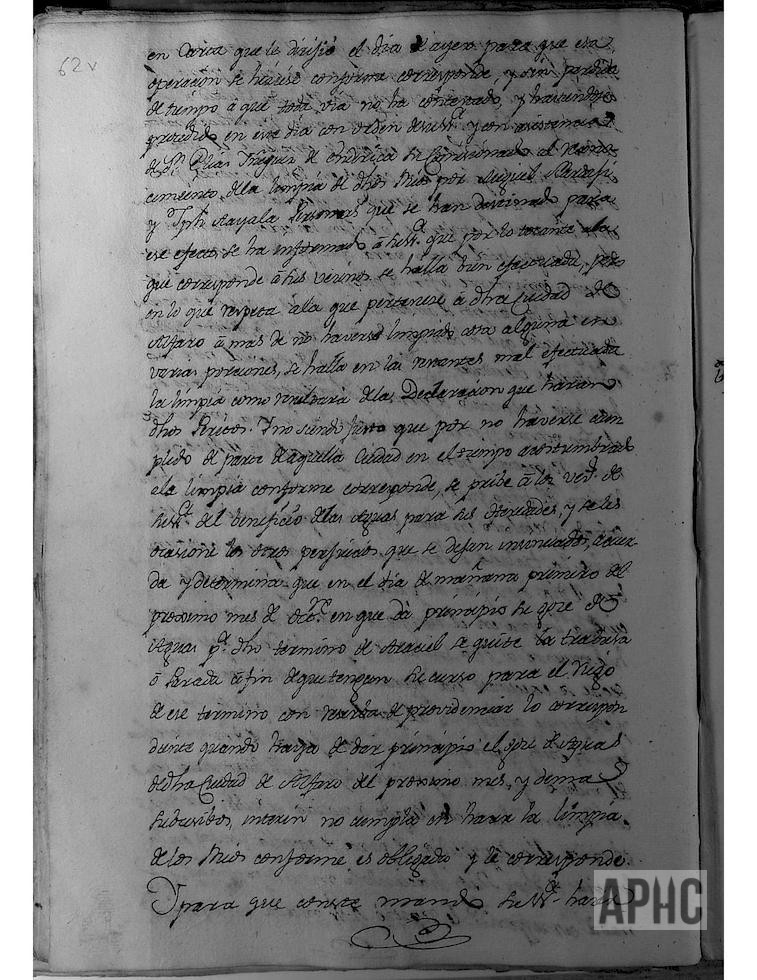 62v
en Carta que le dirijió el dia de ayer para que esa
operacion se hiciese conforme corresponde, y sin perdida
de tiempo à que toda via no ha contestado, y haviendose
procedido en este dia con orden de su Sª y con asistencia
de Dn su Comisionado al recono
cimiento de la limpia de dhos Rios por Miguel
y Jph Ayala Personas que se han destinado para
ese efecto, se ha informado â su Sª que por lo tocante ala
que corresponde â sus vecinos se halla bien efectuada, pero
en lo que respeta àla que pertenece â dha Ciudad de
Alfaro â mas de no haverse limpiado cosa alguna en
varias porciones, se halla en las restantes mal efectuada
la limpia como resultará dela Declaracion que harán
dhos Peritos. Y no siendo justo que por no haverse cum
plido de parte de aquella Ciudad en el tiempo acostumbrado
ala limpia conforme corresponde, se pribe â los vezs. de
su Sª del beneficio delas Aguas para sus Heredades, y seles
ocasione los otros perjuicios que se dejan insinuados, acuer
da y determina que en el dia de mañana primero del
proximo mes de en que dà principio su de
Agua pª dho termino de Araciel se quite la trabiesa
ò Parada â fin de que tengan su curso para el Riego
de ese termino con reserba de providenciar lo correspon
diente quando haya de dar principio el de Aguas
de dha Ciudad de Alfaro del proximo mes, y demas
subcesibos, interin no cumpla en hacer la limpia
de los Rios conforme es obligado y le corresponde.
Y para que conste mandò su Sª hacer
APHC